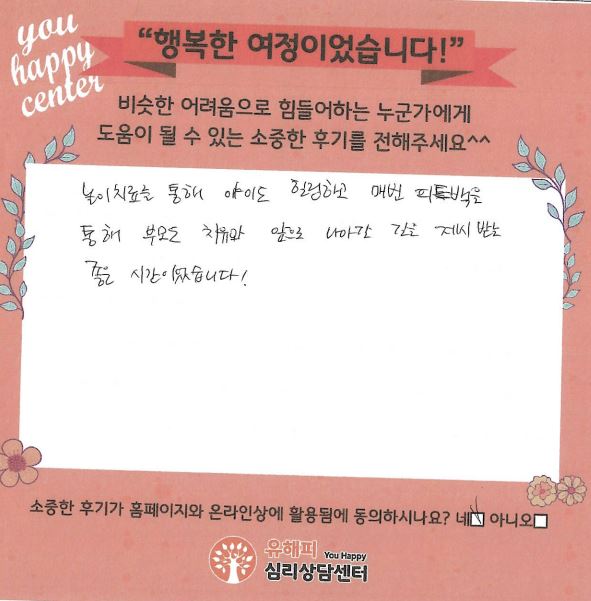 you
happy
center
“행복한 여정이었습니다!”
비슷한 어려움으로 힘들어하는 누군가에게
도움이 될 수 있는 소중한 후기를 전해주세요^^
놀이치료를 통해 아이도 힐링하고 매번 피드백을
통해 부모도 치유와 앞으로 나아갈 길을 제시 받는
좋은 시간이었습니다!
소중한 후기가 홈페이지와 온라인상에 활용됨에 동의하시나요? 네 아니오
유해피 You Happy
심리상담센터